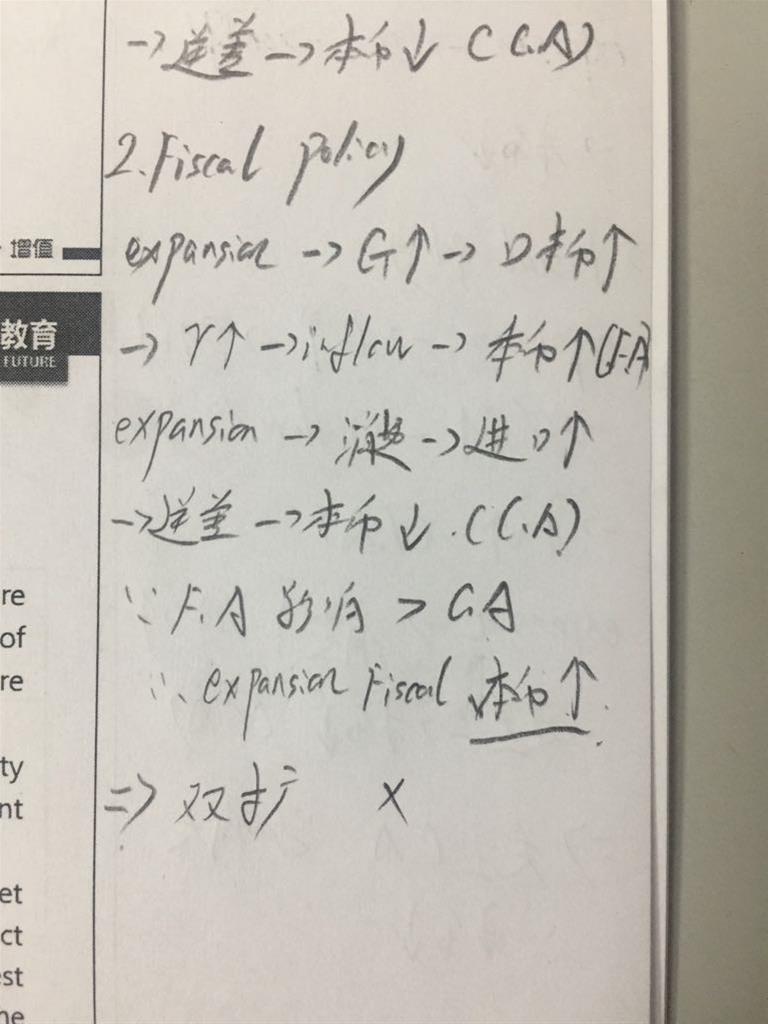 →逆差→本币↓ (C.A)
2.Fiscal policy
增值
expansion → G↑ → D本币↑
教育
FUTURE
→ r↑ →inflow → 本币↑(F.A)
expansion → 消费→进口↑
→逆差→本币↓.(C.A)
∵ F.A 影响 > C.A
re
of
∴ expansion Fiscal 本币↑.
re
ty
⇒ 双扩 ×
nt
et
ct
est
he